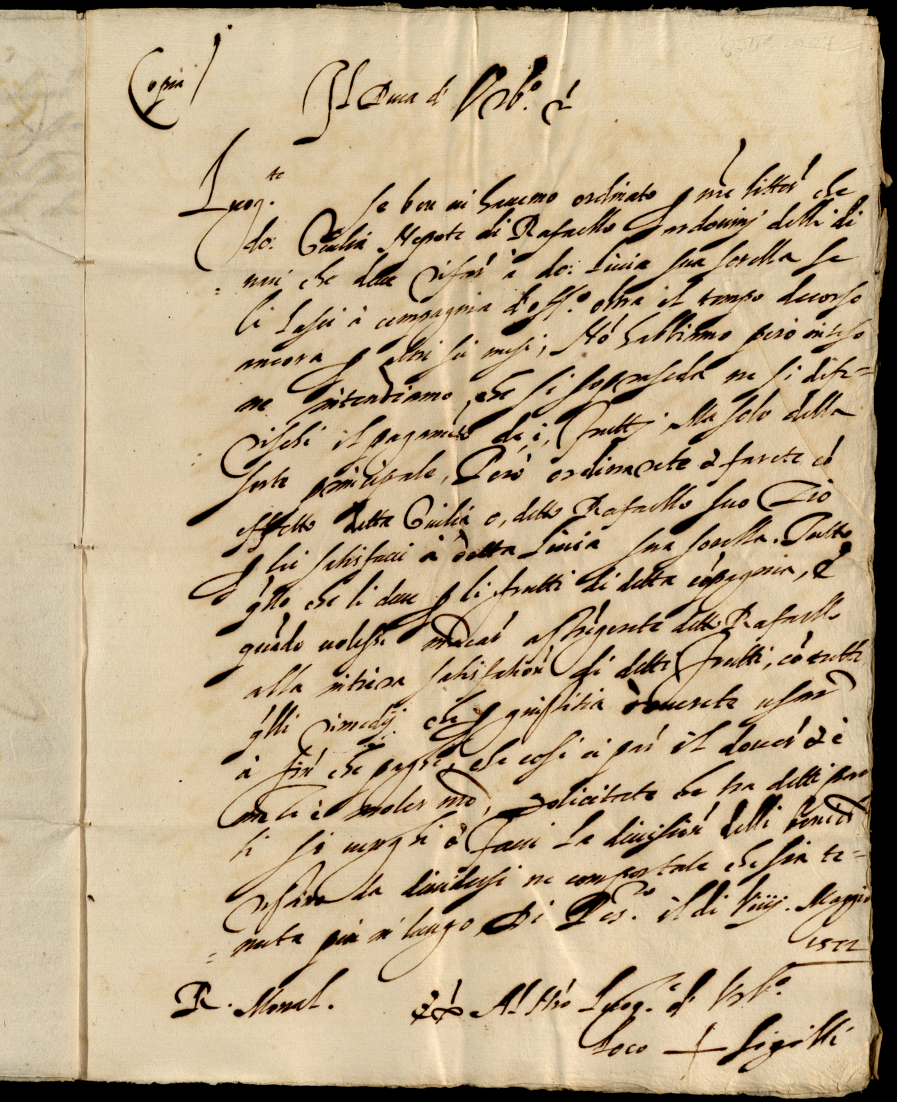 Copia
Il Duca di Urb.o &
Luog.te Se ben vi havemo ordinato p nre littere che
do: Giulia Nepote di Rafaello Ardovinj delli di
nari che deve rifar à do: Livia sua sorella se
li lasci à compagnia d'off.o oltra il tempo decorso
ancora p altri sei mesi, Nō habbiamo però inteso
ne intendiamo, che si sopraseda ne si dife=
rischi il pagamēto de i frutti, Ma solo della
sorte principale, Però ordinarete & farete cō
effetto detta Giulia o, detto Rafaello suo Zio
p lei satisfacci à detta Livia sua sorella. Tutto
q̄llo che li deve p li frutti di detta cōpagnia, &
quādo volesse mācar astrigerete detto Rafaello
alla intiera satisfatiōn di detti frutti, cō tutti
q̄lli rimedij che p giustitia doverete usar
à fin che paghi, che cosi ci par il dover & è
mēte é voler nrō, sollicitete che tra detti
si venghi & facci la divisiōn delli beni
da dividersi ne comportate che sia te=
=nuta piu in lungo Di Pes.ro il di Viiij. Maggio
1572
R. Monal. Al Nrō Luog.te di Urb.o
Loco + Sigilli